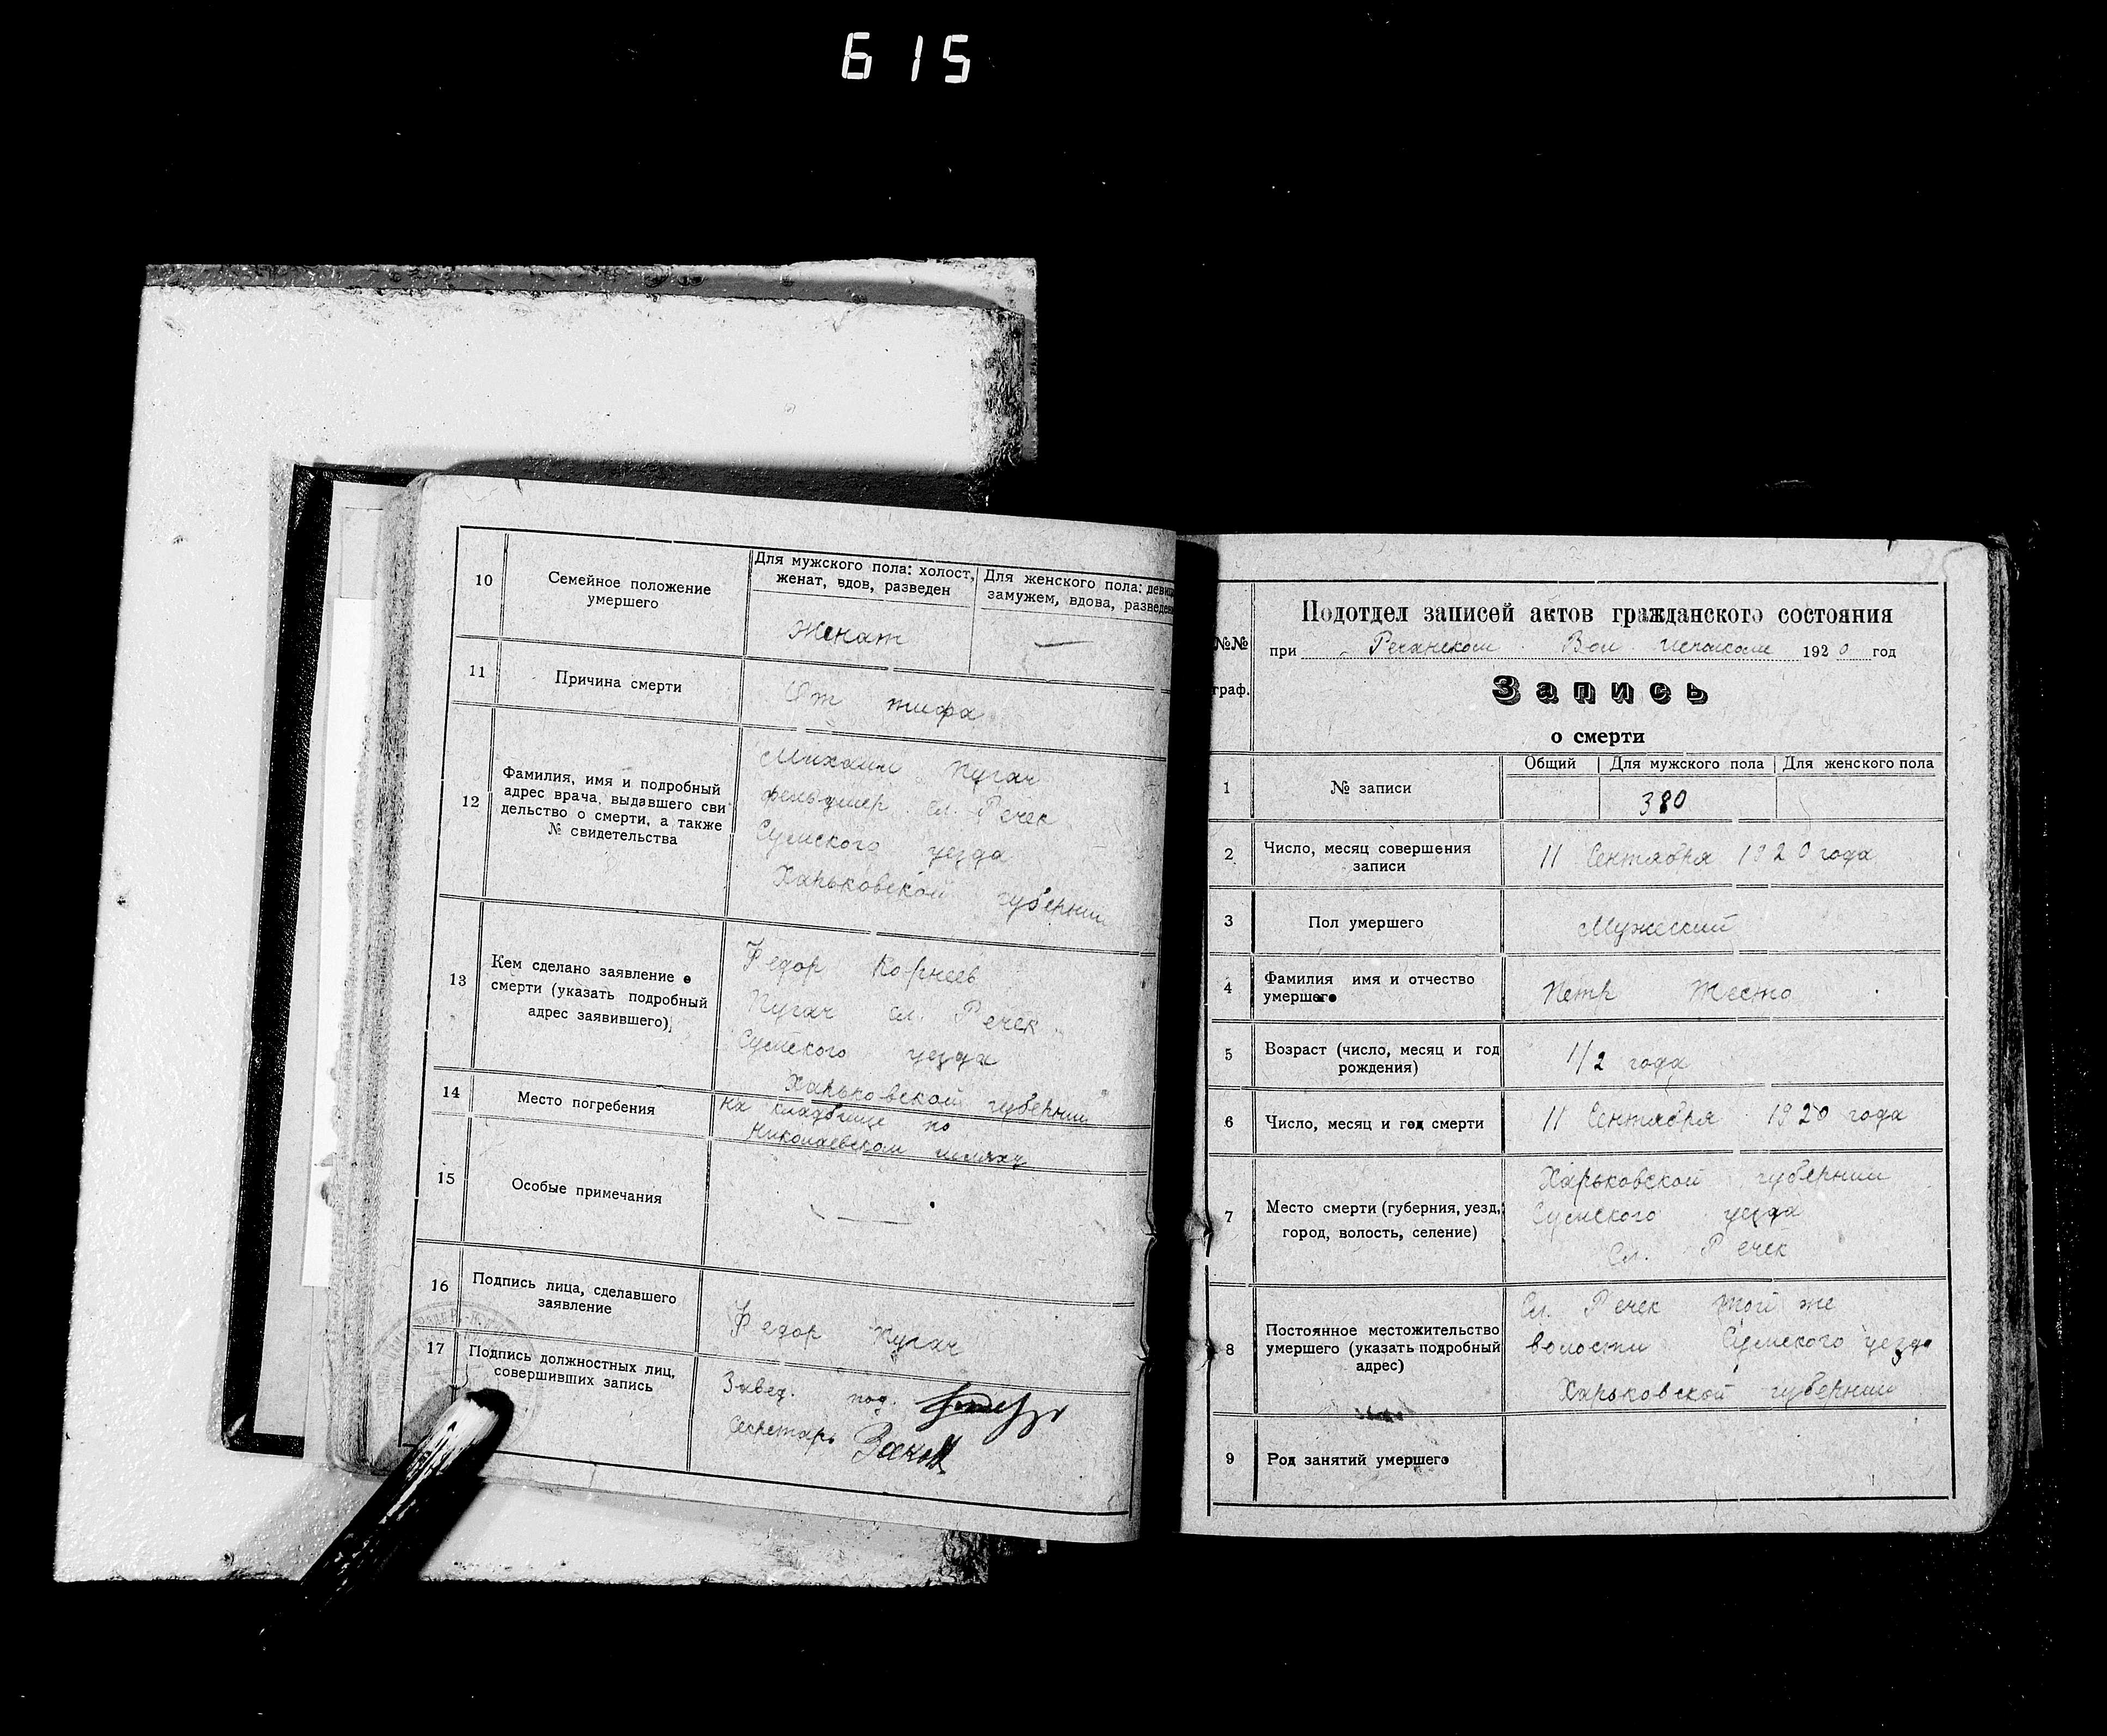 615
10
Семейное положение
умершего
Для мужского пола: холост,
женат, вдов, разведен
Для женского пола: девица
замужем, вдова, разведена
Женат
—
11
Причина смерти
От тифа
12
Фамилия, имя и подробный
адрес врача, выдавшего сви
дельство о смерти, а также
№ свидетельства
Михаил Пугач
фельдшер сл. Речек
Сумского уезда
Харьковской губернии
13
Кем сделано заявление о
смерти (указать подробный
адрес заявившего)
Федор Корнеев
Пугач сл. Речек
Сумского уезда
Харьковской губернии
14
Место погребения
На кладбище по
Николаевском шляху
15
Особые примечания
—
16
Подпись лица, сделавшего
заявление
Федор Пугач
17
Подпись должностных лиц,
совершивших запись
Завед. под.
Секретарь
№№
граф.
Подотдел записей актов гражданского состояния
при Речанском Вол исполкоме 1920 год
Запись
о смерти
1
№ записи
Общий Для мужского пола Для женского пола
380
2
Число, месяц совершения
записи
11 Сентября 1920 года
3
Пол умершего
Мужеский
4
Фамилия имя и отчество
умершего
Петр
5
Возраст (число, месяц и год
рождения)
1/2 года
6
Число, месяц и год смерти
11 Сентября 1920 года
7
Место смерти (губерния, уезд,
город, волость, селение)
Харьковской губернии
Сумского уезда
Сл. Речек
8
Постоянное местожительство
умершего (указать подробный
адрес)
Сл. Речек той же
волости Сумского уезда
Харьковской губернии
9
Род занятий умершего